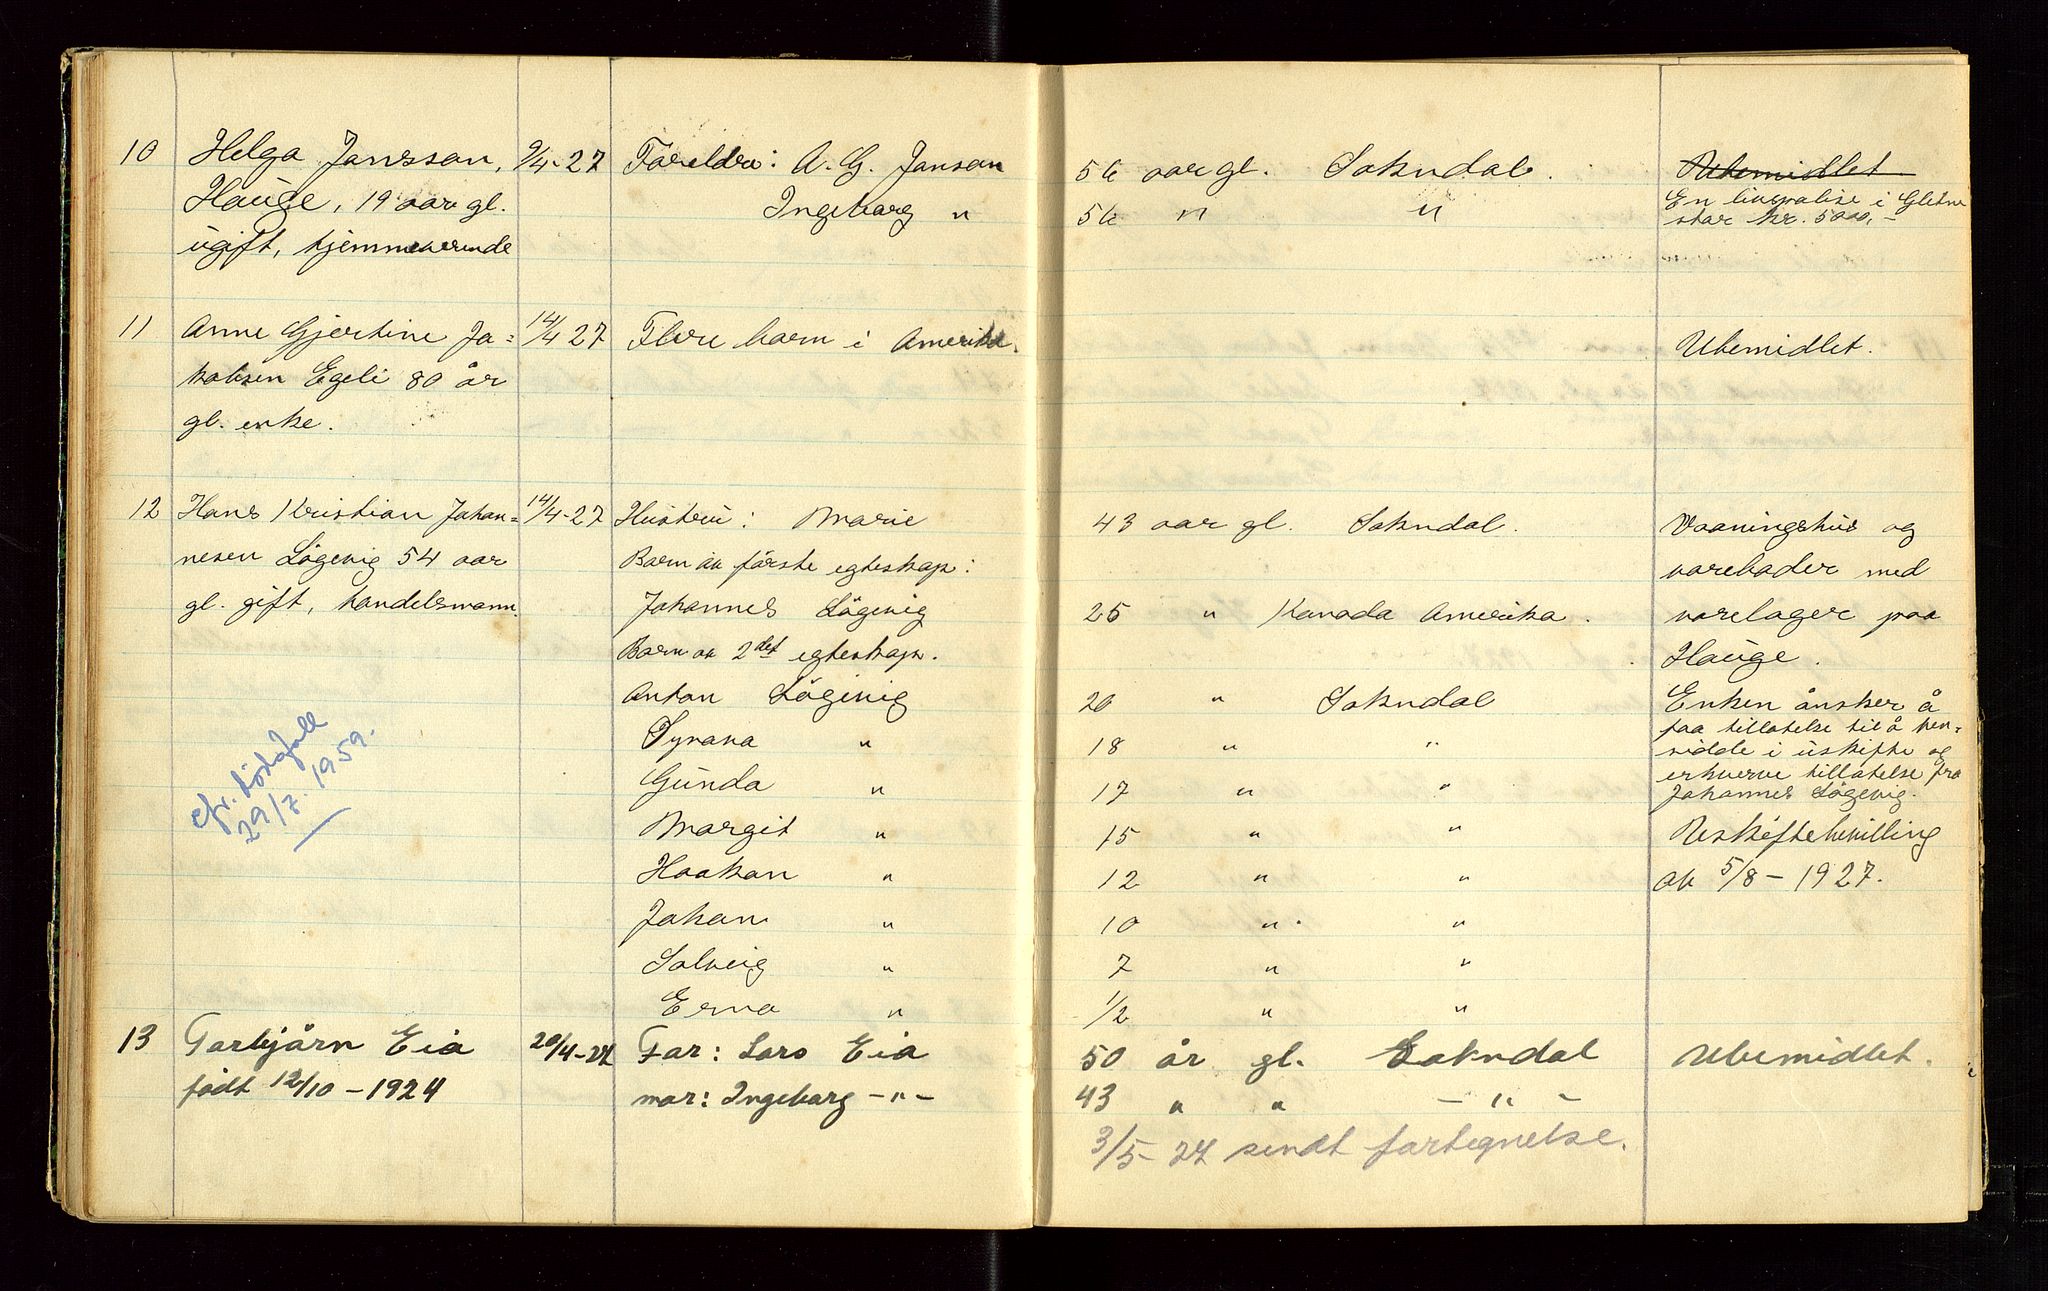 10 Helga Jansson, 9/4-27 Foreldre: A. G. Janson 56 aar gl. Sokndal. Ubemidlet
Hauge, 19 aar gl. Ingeborg " 56 " " En livspolise i
ugift, hjemmeværende står kr. 5000,-
11 Anne Gjertine Ja= 14/4 27 Flere barn i Amerika. Ubemidlet.
kobsen Egeli 80 år
gl. enke.
12 Hans Kristian Johan= 14/4-27 Hustru: Marie 43 aar gl. Sokndal. Vaaningshus og
nesen Løgevig 54 aar Barn av første egteskap: vareboder med
gl. gift, handelsmann. Johannes Løgevig 25 " Kanada Amerika. varelager paa
Barn av 2det egteskap. Hauge.
Anton Løgevig 20 " Sokndal Enken ønsker å
Tyrana " 18 " " faa tillatelse til å hen=
sidde i uskifte og
Gunda " 17 " " erhverve tillatelse fra
Johannes Løgevig.
cfr. dødsfall
29/7. 1959.
Margit " 15 " " Uskiftebevilling
Haakon " 12 " " av 5/8-1927.
Johan " 10 " "
Solveig " 7 " "
Erna " 1/2 " "
13 Torbjørn Eia 20/4-27 Far: Lars Eia 50 år gl. Sokndal Ubemidlet.
født 12/10-1924 mor: Ingeborg -"- 43 " " -"-
3/5-27 sendt fortegnelse.